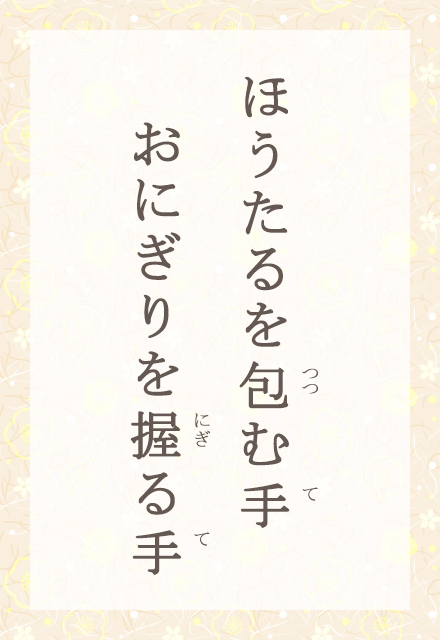 ほうたるを包む手
つつ
て
おにぎりを握る手
にぎ
て